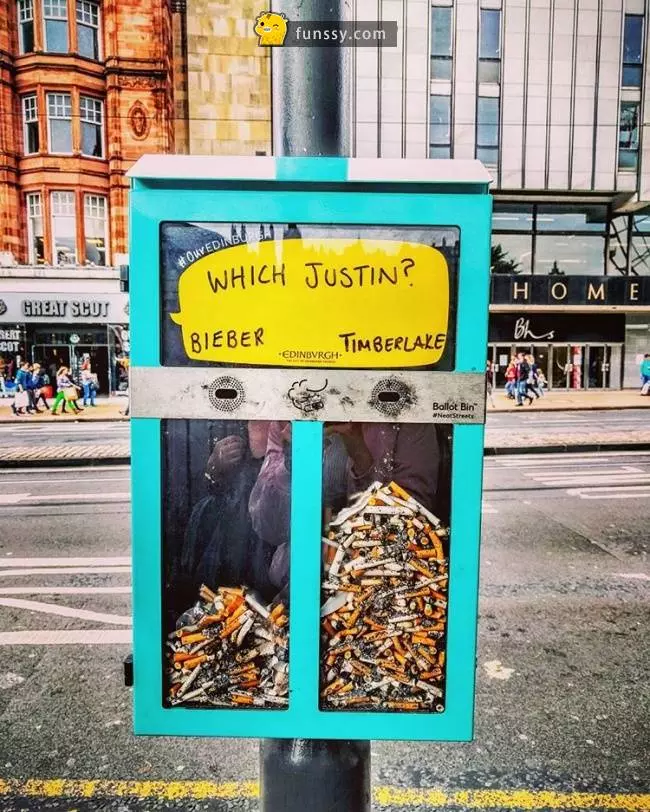 funssy.com
#OurEDINBURGH
WHICH JUSTIN?
BIEBER
TIMBERLAKE
·EDINBVRGH·
GREAT SCOT
HOME
Bhs
Ballot Bin™
#NeatStreets